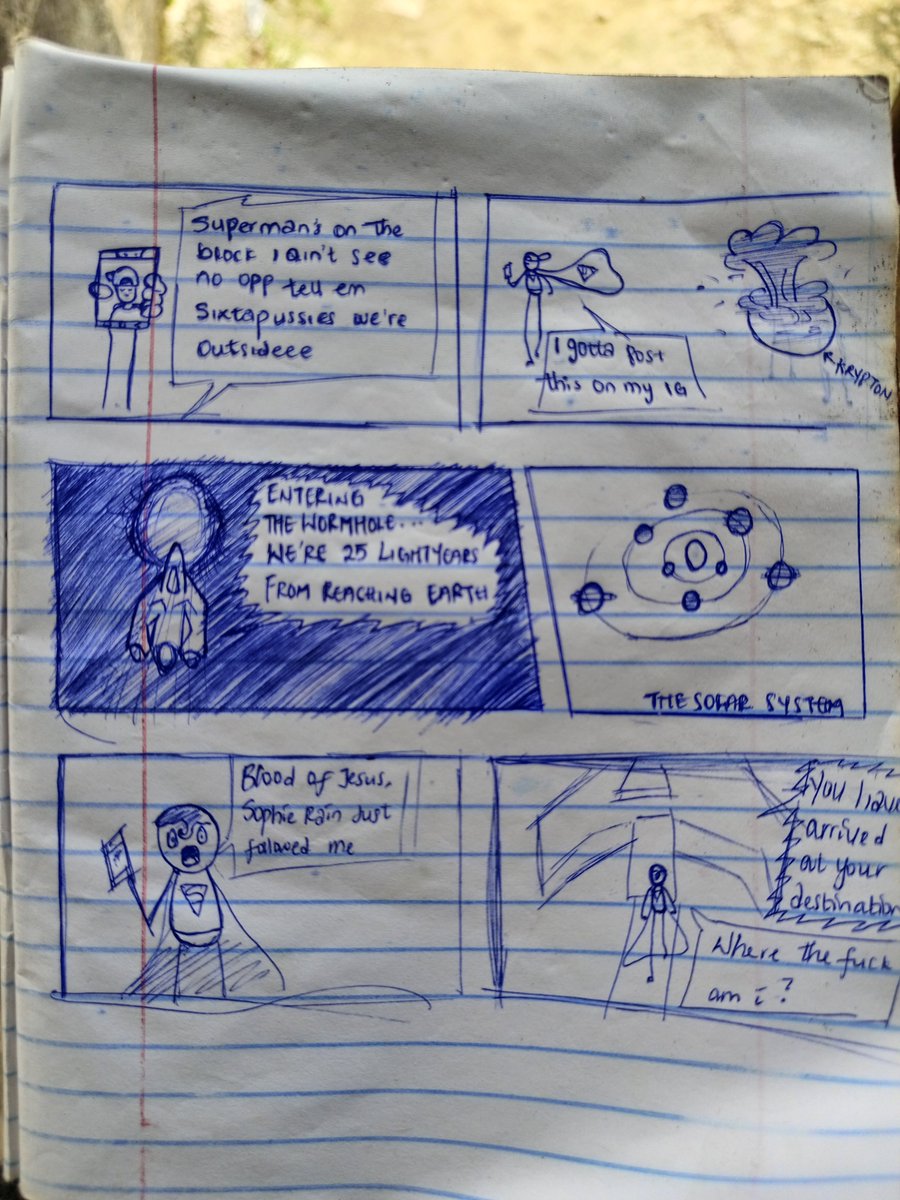 Superman's on The
block I ain't see
no opp tell em
Sixtapussies we're
Outsideee
I gotta post
this on my IG
KRYPTON
ENTERING
THE WORMHOLE...
WE'RE 25 LIGHTYEARS
FROM REACHING EARTH
THE SOLAR SYSTEM
Blood of Jesus,
Sophie Rain Just
folowed me
You have
arrived
at your
destination
Where the fuck
am i?